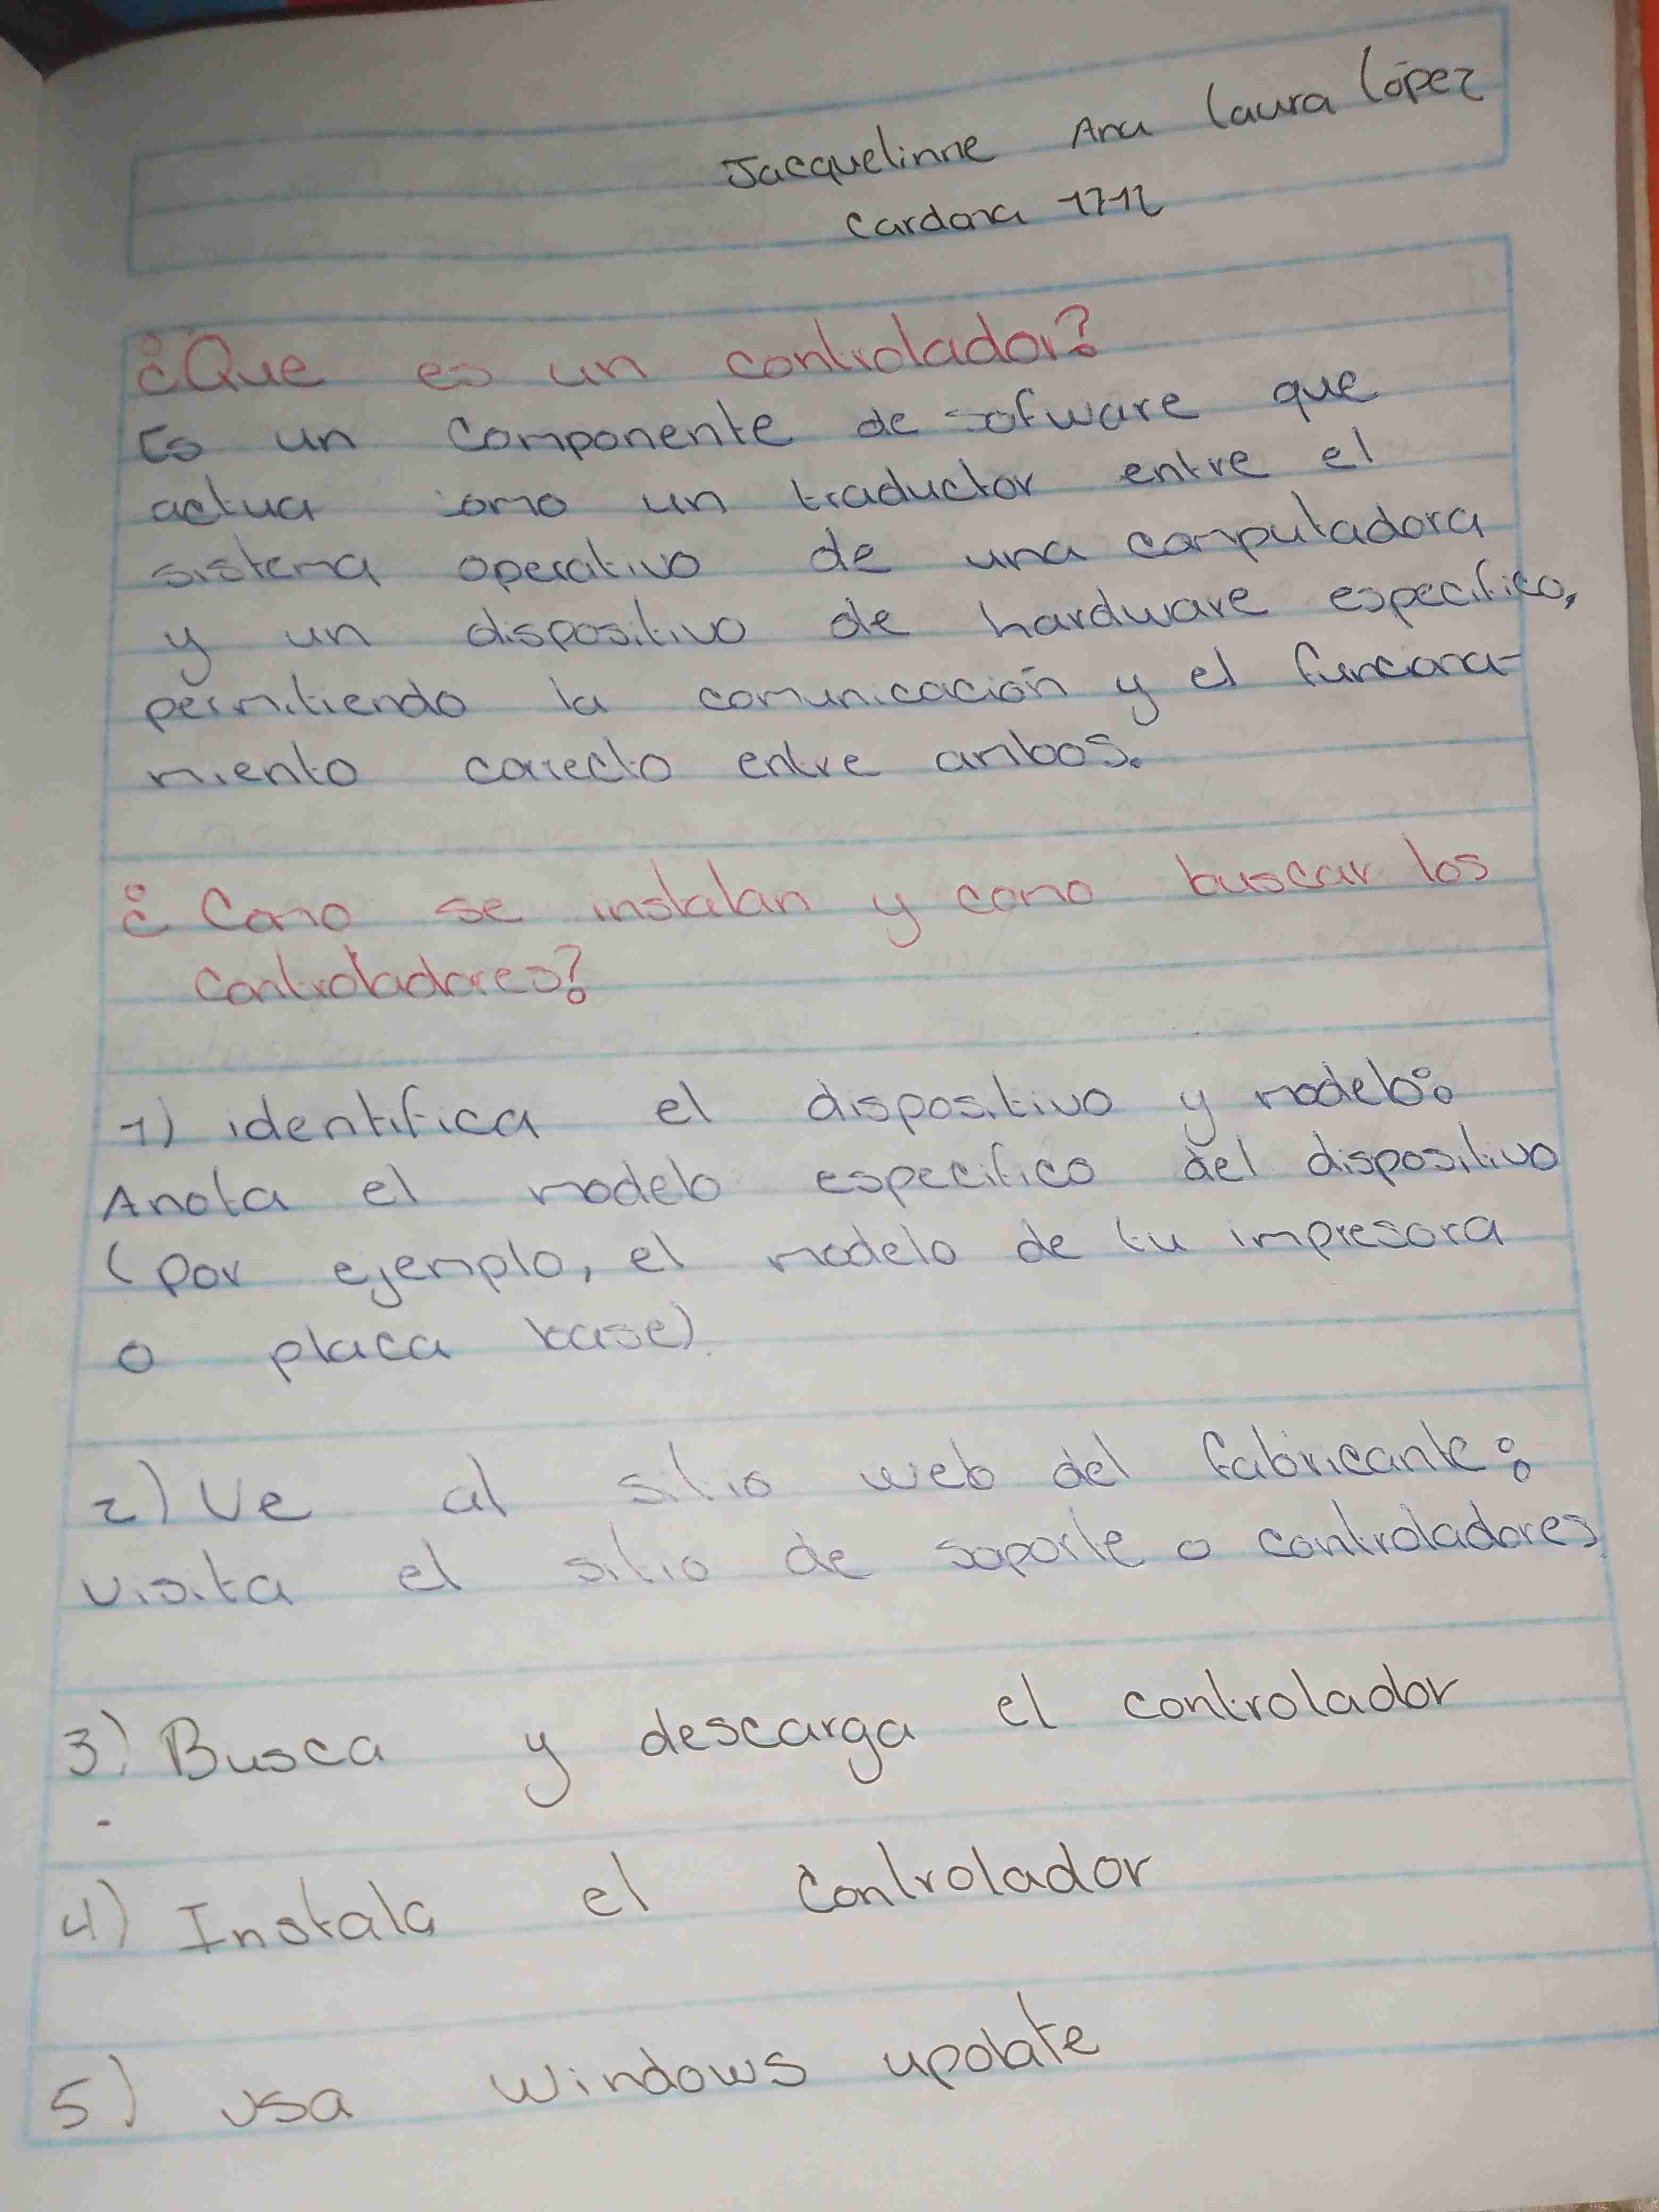 Jacquelinne Ana Laura López
Cardona 1712
¿Que es un controlador?
Es un componente de sofware que
actua como un traductor entre el
sistema operativo de una computadora
y un dispositivo de hardware especifico,
permitiendo la comunicación y el funcona-
miento correcto entre ambos.
¿Como se instalan y como buscar los
controladores?
1) identifica el dispositivo y modelo:
Anota el modelo especifico del dispositivo
(por ejemplo, el modelo de tu impresora
o placa base).
2) Ve al sitio web del fabricante:
visita el sitio de soporte o controladores.
3) Busca y descarga el controlador
4) Instala el controlador
5) Usa Windows update